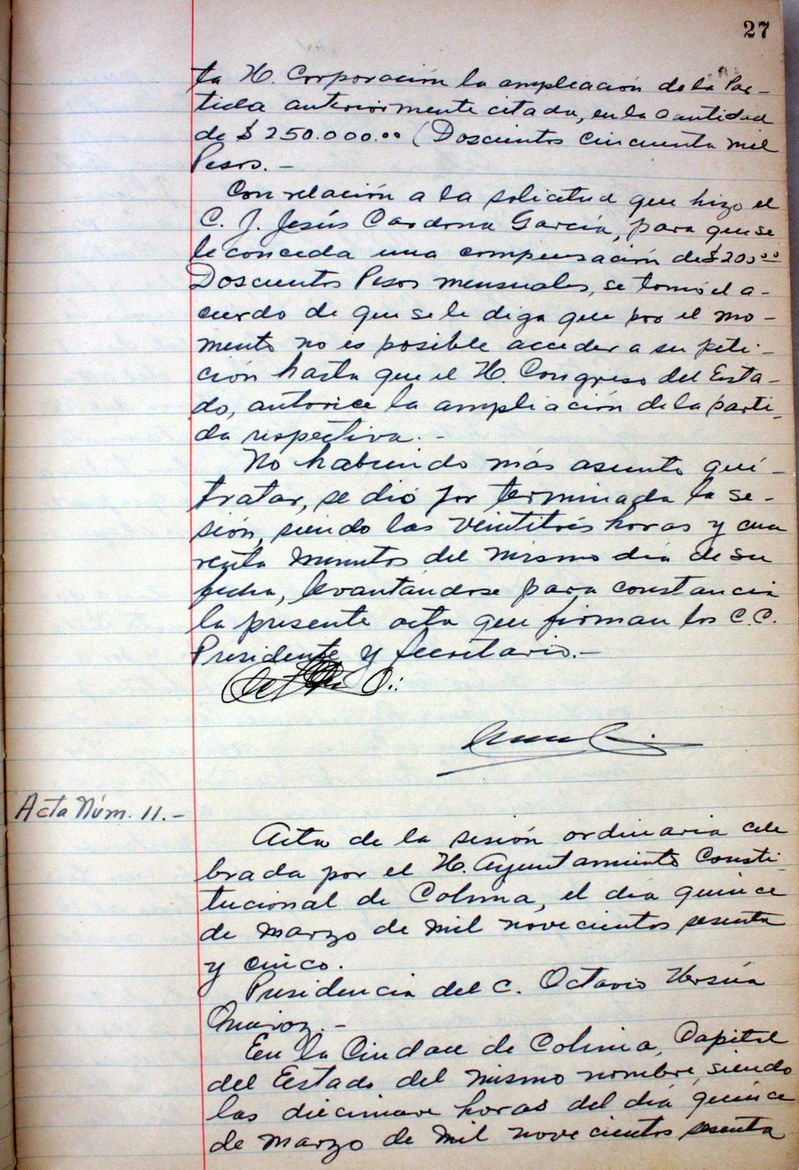 27
ta H. Corporación la ampliación de la Par-
tida anteriormente citada, en la cantidad
de $ 250.000.00 (Doscientos cincuenta mil
Pesos.-
Con relación a la solicitud que hizo el
C. J. Jesús Cardona García, para que se
le conceda una compensación de $200.00
Doscientos Pesos mensuales, se tomó el a-
cuerdo de que se le diga que por el mo-
mento no es posible acceder a su peti-
ción hasta que el H. Congreso del Esta-
do, autorice la ampliación de la parti-
da respectiva.-
No habiendo más asunto qué
tratar, se dió por terminada la se-
sión, siendo las veintitrés horas y cua
renta minutos del mismo día de su
fecha, levantándose para constancia
la presente acta que firman los C.C.
Presidente y Secretario.-
Acta Núm. 11.-
Acta de la sesión ordinaria cele
brada por el H. Ayuntamiento Consti-
tucional de Colima, el día quince
de marzo de mil novecientos sesenta
y cinco.
Presidencia del C. Octavio
En la Ciudad de Colima, Capital
del Estado del mismo nombre, siendo
las diecinueve horas del día quince
de marzo de mil novecientos sesenta